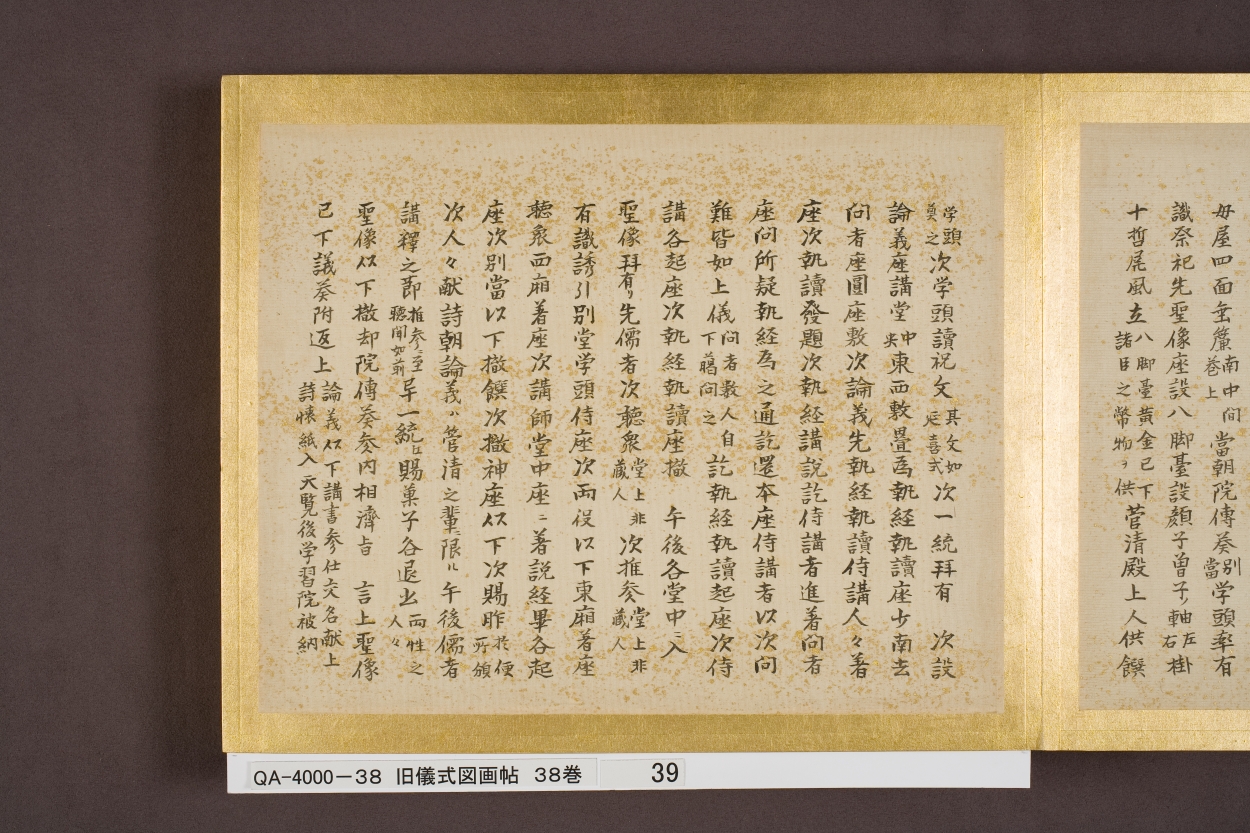 毋屋四面垂簾南中間巻上當朝院傳奏別當学頭率有
識祭祀先聖像座設八脚臺設顔子曽子軸左右掛
十哲屏風立八脚臺黄金已下諸臣之幣物ヲ供菅清殿上人供饌
学頭奠之次学頭讀祝文其文如延喜式次一統拜有　次設
論義座講堂中央東西敷畳為執経執讀座少南去
問者座圓座敷次論義先執経執讀侍講人々著
座次執讀發題次執経講説訖侍講者進著問者
座問所疑執経為之通訖還本座侍講者以次問
難皆如上儀問者数人自下﨟問之訖執経執讀起座次侍
講各起座次執経執讀座撤　午後各堂中ニ入
聖像拜有リ先儒者次聴衆堂上非蔵人次推参堂上非蔵人
有識誘引別堂学頭侍座次両役以下東廂著座
聴衆西廂着座次講師堂中座ニ著説経畢各起
座次別當以下撤饌次撤神座以下次賜胙於便所頒
次人々献詩朝論義ハ菅清之輩ニ限ル午後儒者
講釋之節推参ニ至聴聞如前早一統江賜菓子各退出而性之人々
聖像以下撤却院傳奏参内相濟旨　言上聖像
已下議奏附返上論義以下講書参仕交名献上詩懐紙入天覧後学習院被納
QA-4000-38 旧儀式図画帖 38巻 39